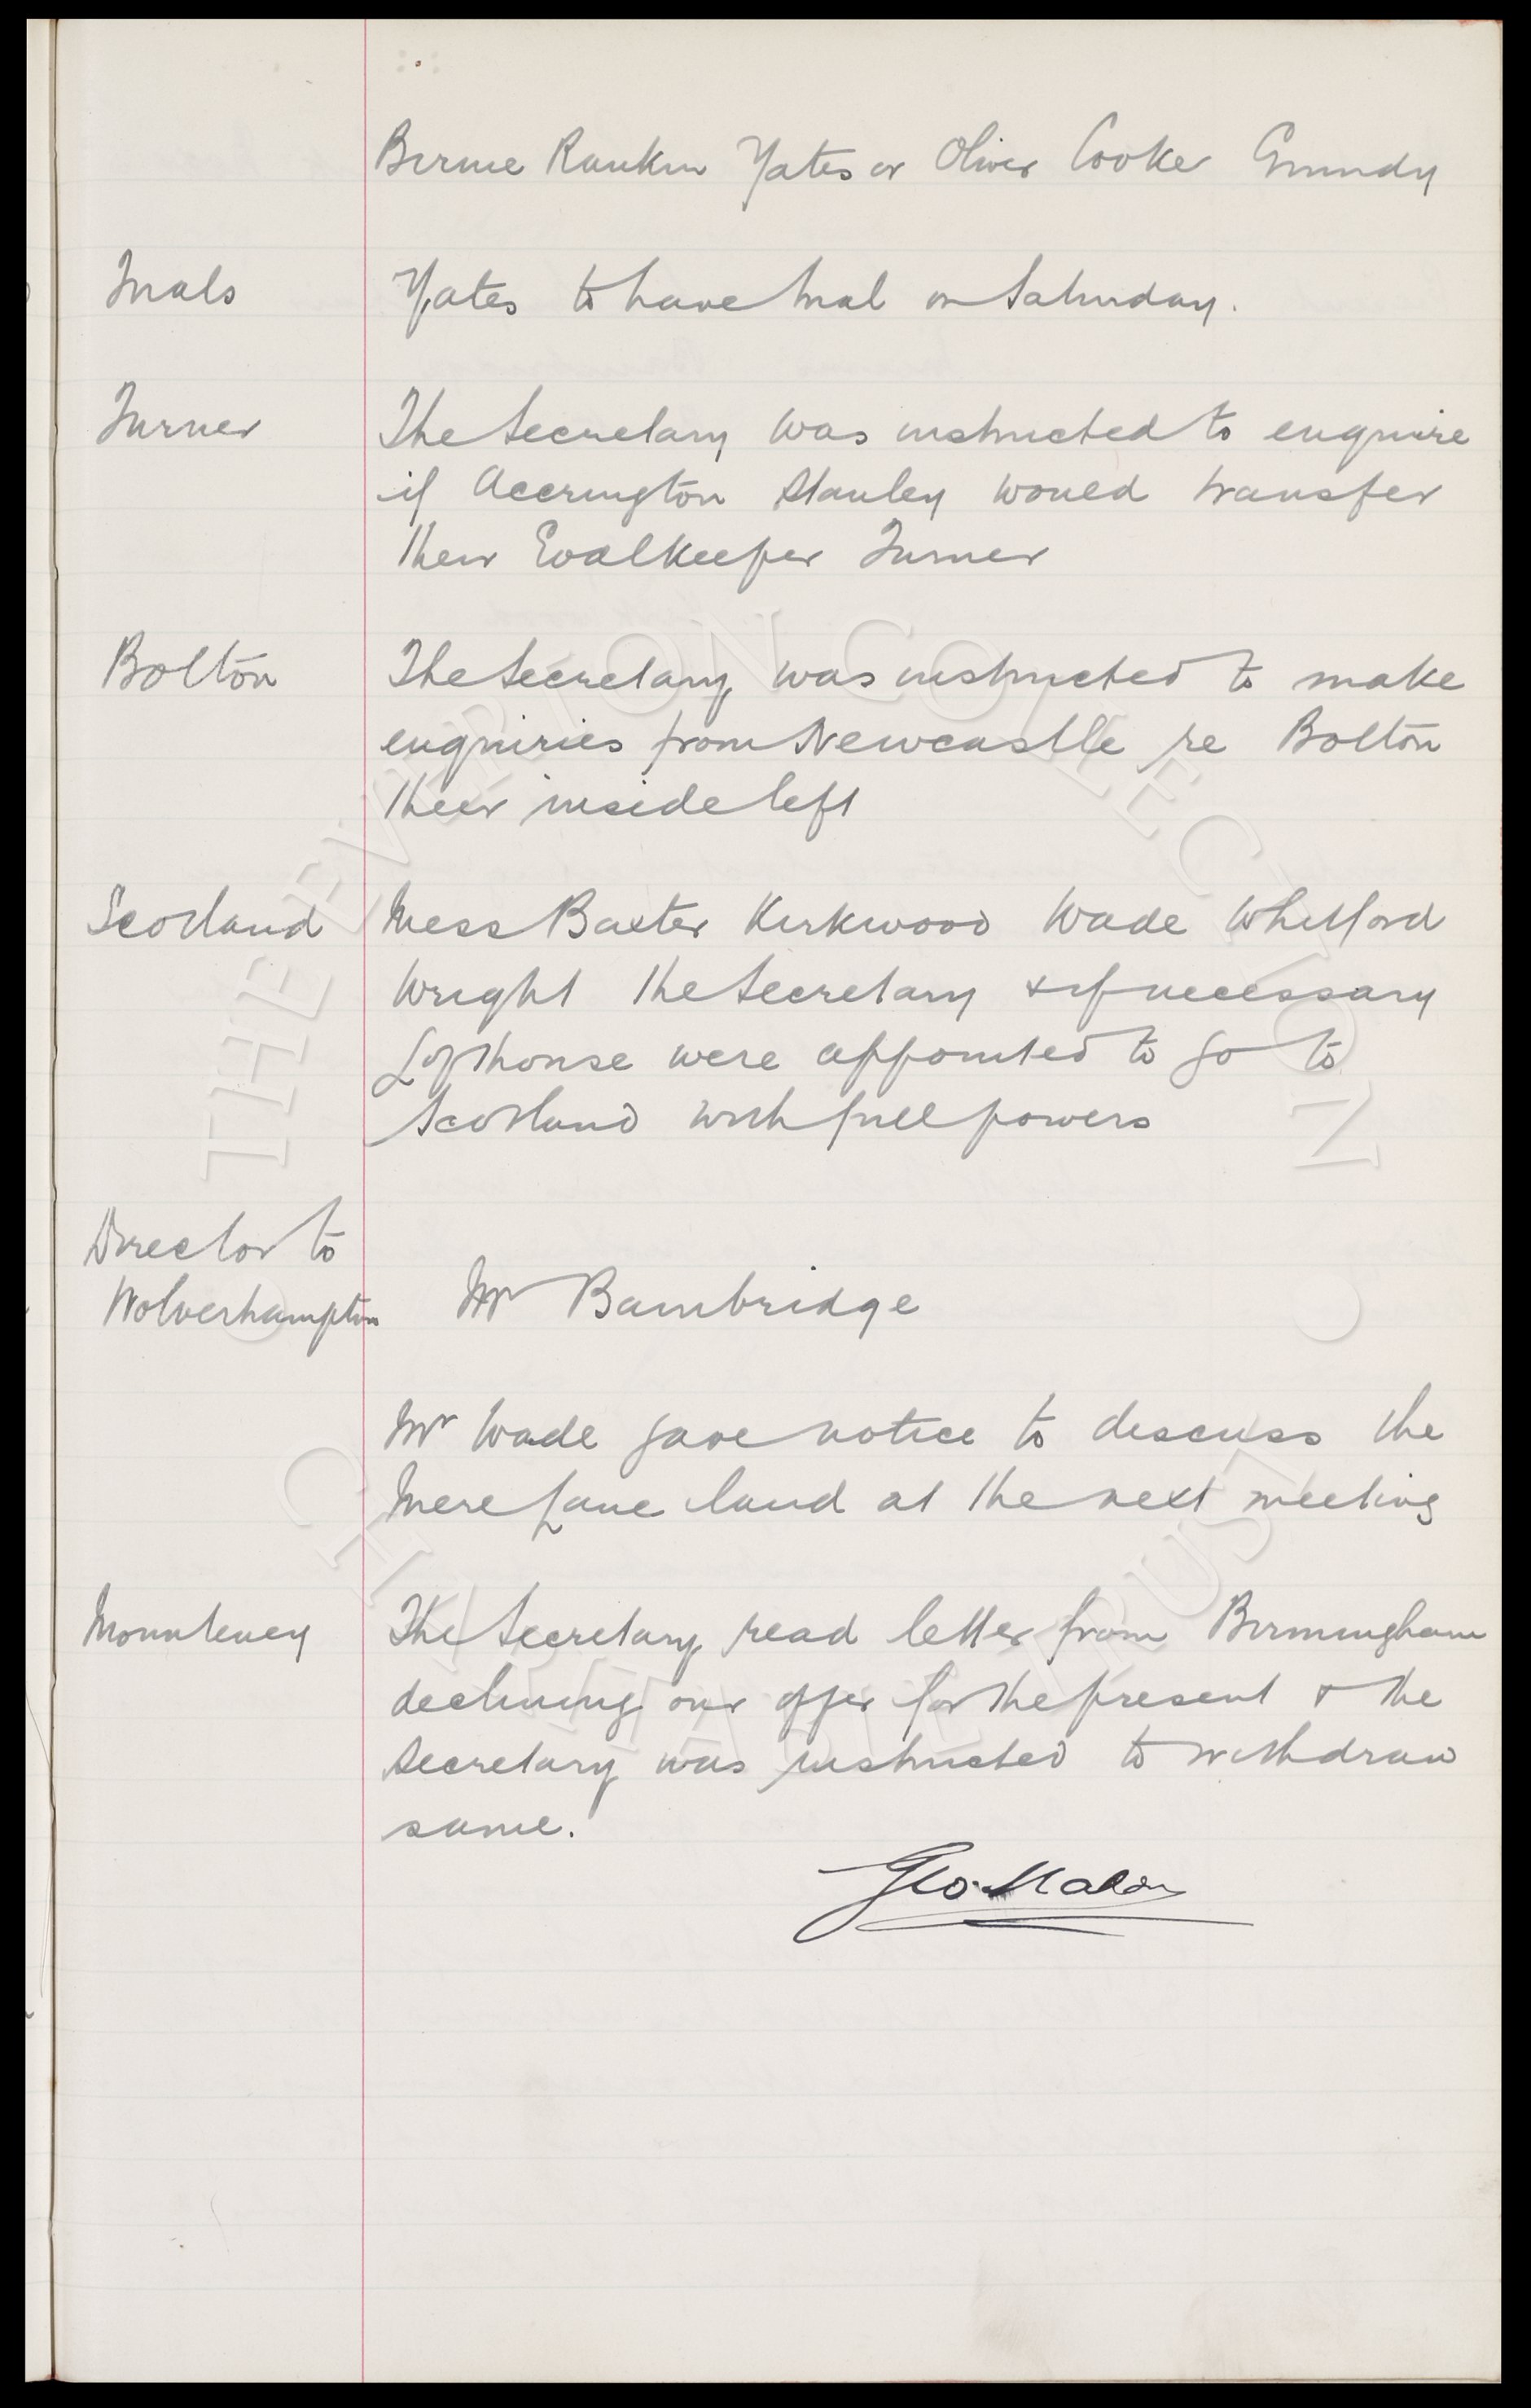 Birnie Rankin Yates or Oliver Cooke Grundy
Trials Yates to have trial on Saturday.
Turner The Secretary was instructed to enquire
if Accrington Stanley would transfer
their Goalkeeper Turner
Bolton The Secretary was instructed to make
enquiries from Newcastle re Bolton
their inside left
Scotland Mess Baxter Kirkwood Wade Whitford
Wright the Secretary & if necessary
Lofthouse were appointed to go to
Scotland with full powers
Director to
Wolverhampton Mr Bainbridge
Mr Wade gave notice to discuss the
Mere Lane land at the next meeting
Mounteney The Secretary read letter from Birmingham
declining our offer for the present & the
Secretary was instructed to withdraw
same.
Geo. Mahon
THE EVERTON COLLECTION
CHARITABLE TRUST